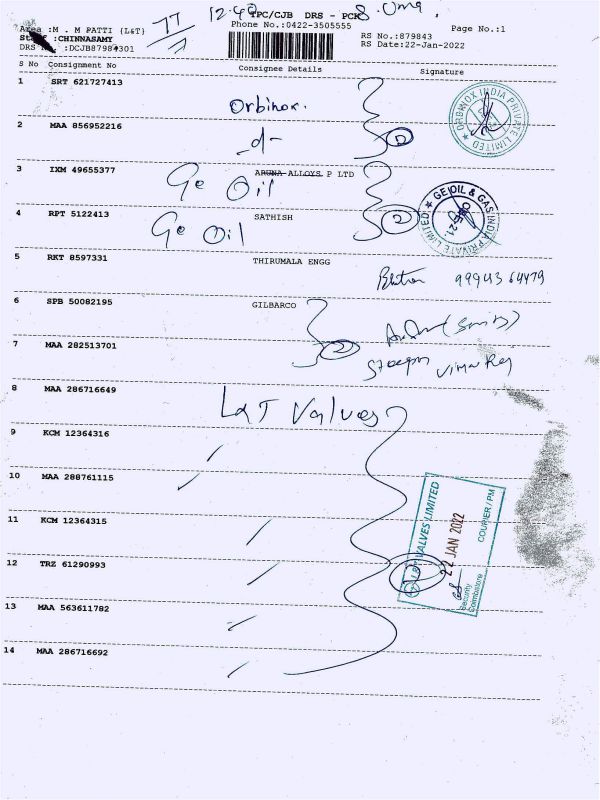 12:40 TPC/CJB DRS - PCK S. Uma.
Phone No.:0422-3505555 Page No.:1
Area :M . M PATTI {L&T}
:CHINNASAMY RS No.:879843
DRS :DCJB87984301 RS Date:22-Jan-2022
S No Consignment No Consignee Details Signature
1 SRT 621727413
Orbinox.
ORBINOX INDIA PRIVATE LIMITED
2 MAA 856952216
-d-
3 IXM 49655377 ARUNA ALLOYS P LTD
Ge Oil
GE OIL & GAS INDIA PRIVATE LIMITED
4 RPT 5122413 SATHISH
Ge Oil 2
5 RKT 8597331 THIRUMALA ENGG
99943 64479
6 SPB 50082195 GILBARCO
7 MAA 282513701
2
8 MAA 286716649
L&T Valves
9 KCM 12364316
10 MAA 288761115
11 KCM 12364315
12 TRZ 61290993
13 MAA 563611782
14 MAA 286716692
L&T VALVES LIMITED
22 JAN 2022
COURIER / PM
Security
Coimbatore